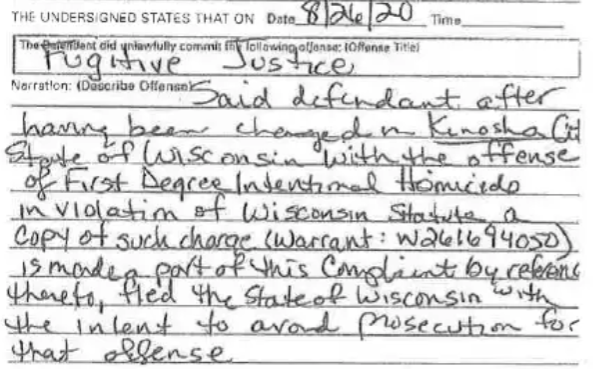 THE UNDERSIGNED STATES THAT ON Date 8/26/20 Time
The Defendant did unlawfully commit the following offense: (Offense Title)
Fugitive Justice
Narration: (Describe Offense) Said defendant after
having been charged in Kenosha
State of Wisconsin with the offense
of First Degree Intentional Homicide
in violation of Wisconsin Statute a
copy of such charge (warrant: W261694050)
is made a part of this Complaint by referenc
thereto, fled the State of Wisconsin with
the intent to avoid prosecution for
that offense